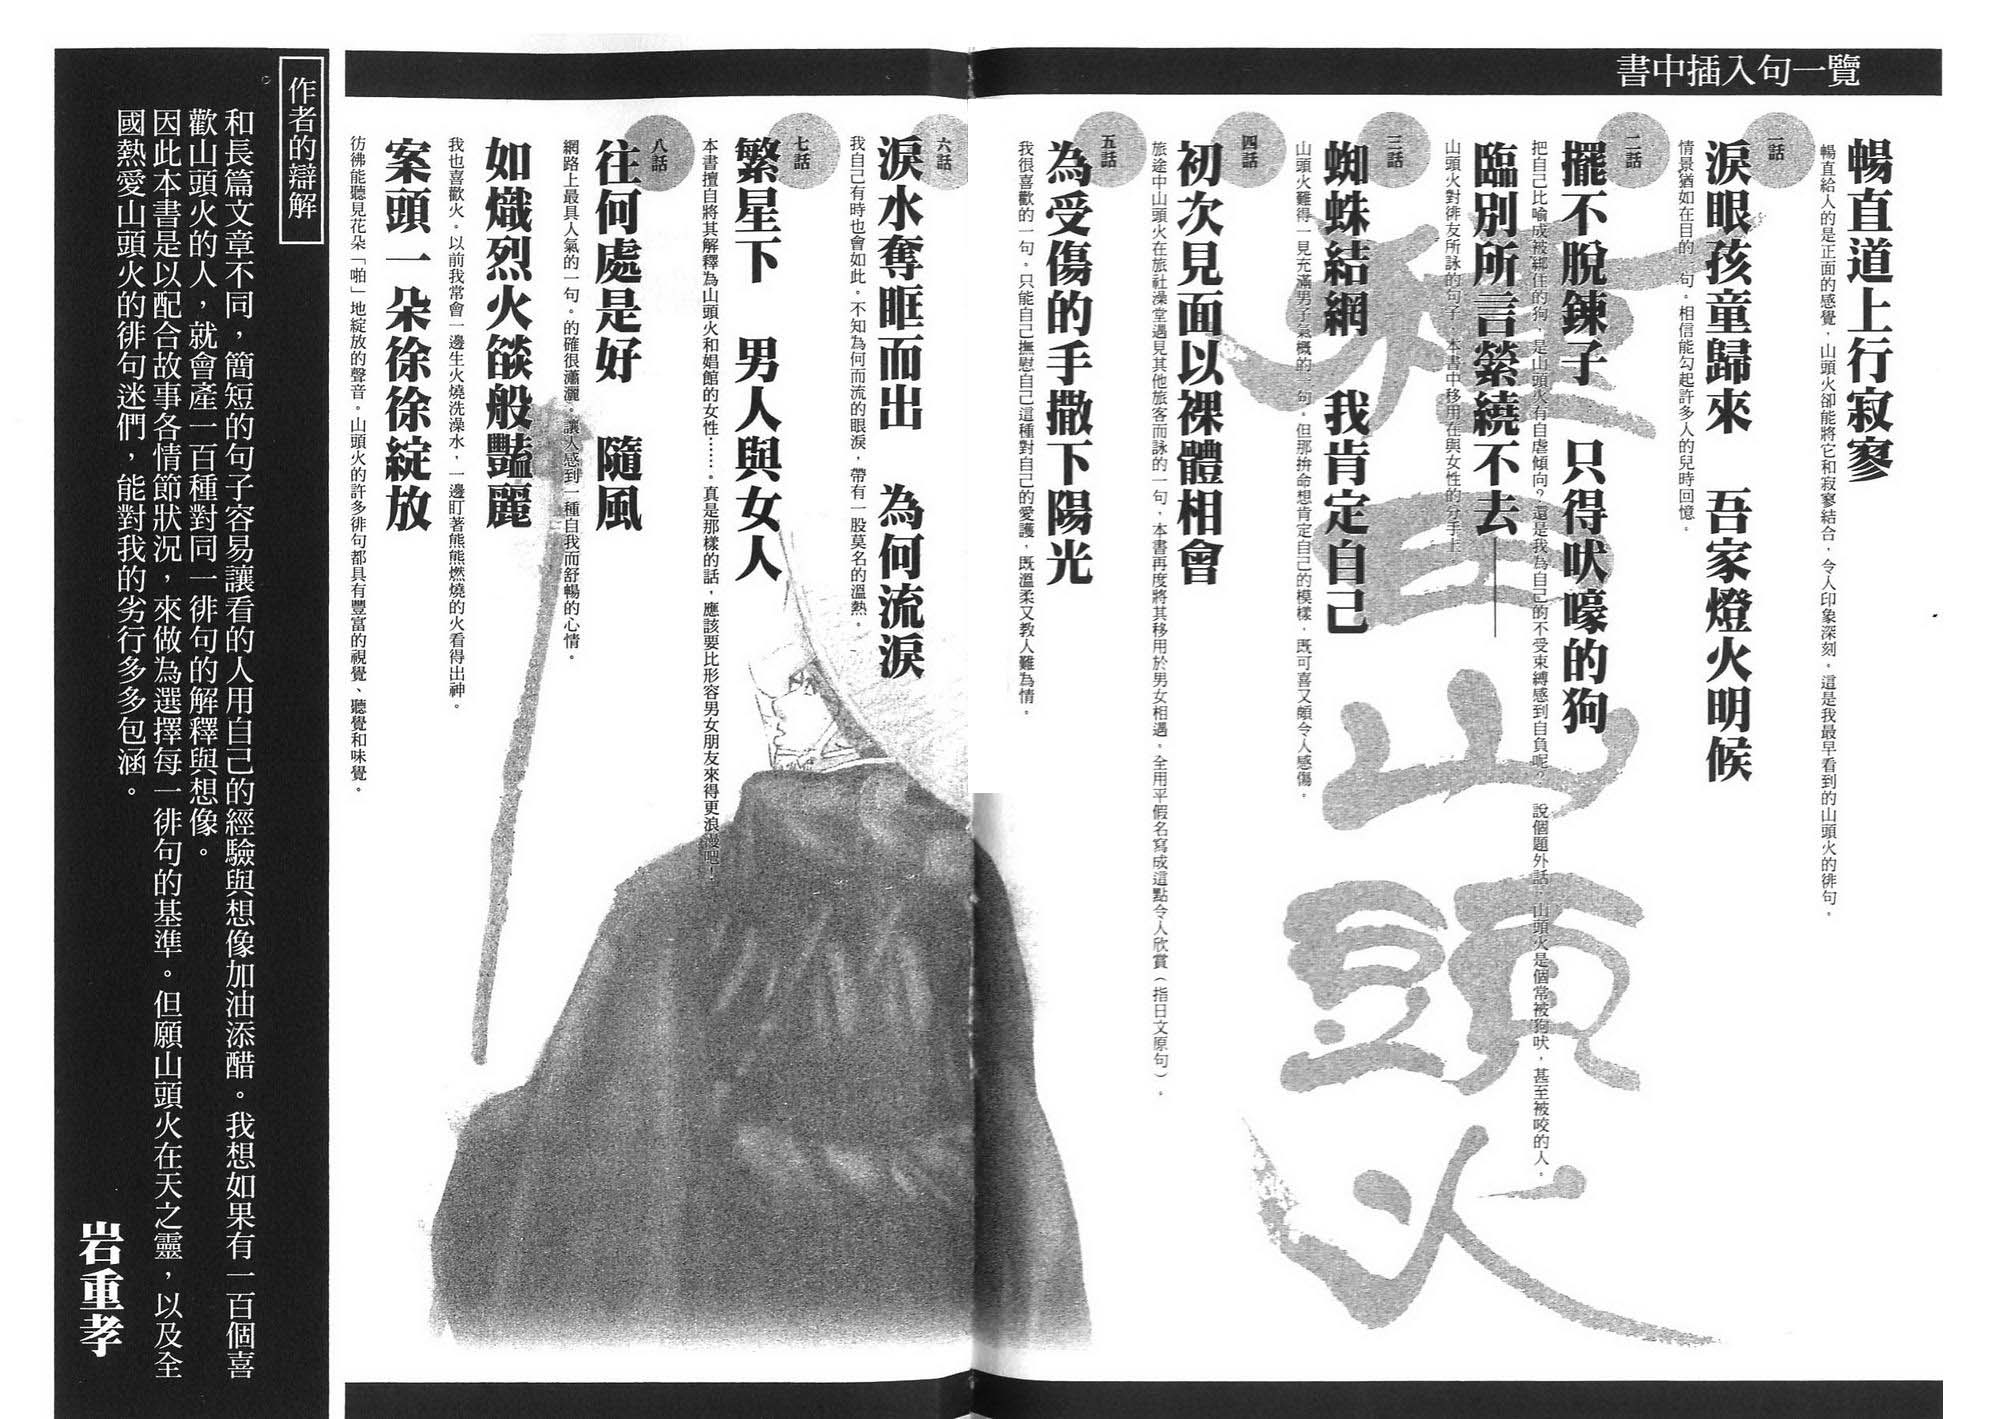 書中插入句一覽
暢直道上行寂寥
暢直給人的是正面的感覺，山頭火卻能將它和寂寥結合，令人印象深刻。這是我最早看到的山頭火的徘句。
一話
淚眼孩童歸來　吾家燈火明候
情景猶如在目的一句。相信能勾起許多人的兒時回憶。
二話
擺不脫鍊子　只得吠嚎的狗
把自己比喻成被綁住的狗，是山頭火有自虐傾向？還是我為自己的不受束縛感到自負呢？　說個題外話，山頭火是個常被狗吠，甚至被咬的人。
臨別所言縈繞不去──
山頭火對徘友所詠的句子，本書中移用在與女性的分手上。
三話
蜘蛛結網　我肯定自己
山頭火難得一見充滿男子氣概的一句。但那拚命想肯定自己的模樣，既可喜又頗令人感傷。
四話
初次見面以裸體相會
旅途中山頭火在旅社澡堂遇見其他旅客而詠的一句，本書再度將其移用於男女相遇。全用平假名寫成這點令人欣賞（指日文原句）。
五話
為受傷的手撒下陽光
我很喜歡的一句。只能自己撫慰自己這種對自己的愛護，既溫柔又教人難為情。
六話
淚水奪眶而出　為何流淚
我自己有時也會如此。不知為何而流的眼淚，帶有一股莫名的溫熱。
七話
繁星下　男人與女人
本書擅自將其解釋為山頭火和娼館的女性……。真是那樣的話，應該要比形容男女朋友來得更浪漫吧！
八話
往何處是好　隨風
網路上最具人氣的一句。的確很瀟灑。讓人感到一種自我而舒暢的心情。
如熾烈火燄般豔麗
我也喜歡火。以前我常會一邊生火燒洗澡水，一邊盯著熊熊燃燒的火看得出神。
案頭一朵徐徐綻放
彷彿能聽見花朵「啪」地綻放的聲音。山頭火的許多徘句都具有豐富的視覺、聽覺和味覺。
種田山頭火
作者的辯解
和長篇文章不同，簡短的句子容易讓看的人用自己的經驗與想像加油添醋。我想如果有一百個喜
歡山頭火的人，就會產一百種對同一徘句的解釋與想像。
因此本書是以配合故事各情節狀況，來做為選擇每一徘句的基準。但願山頭火在天之靈，以及全
國熱愛山頭火的徘句迷們，能對我的劣行多多包涵。
岩重孝